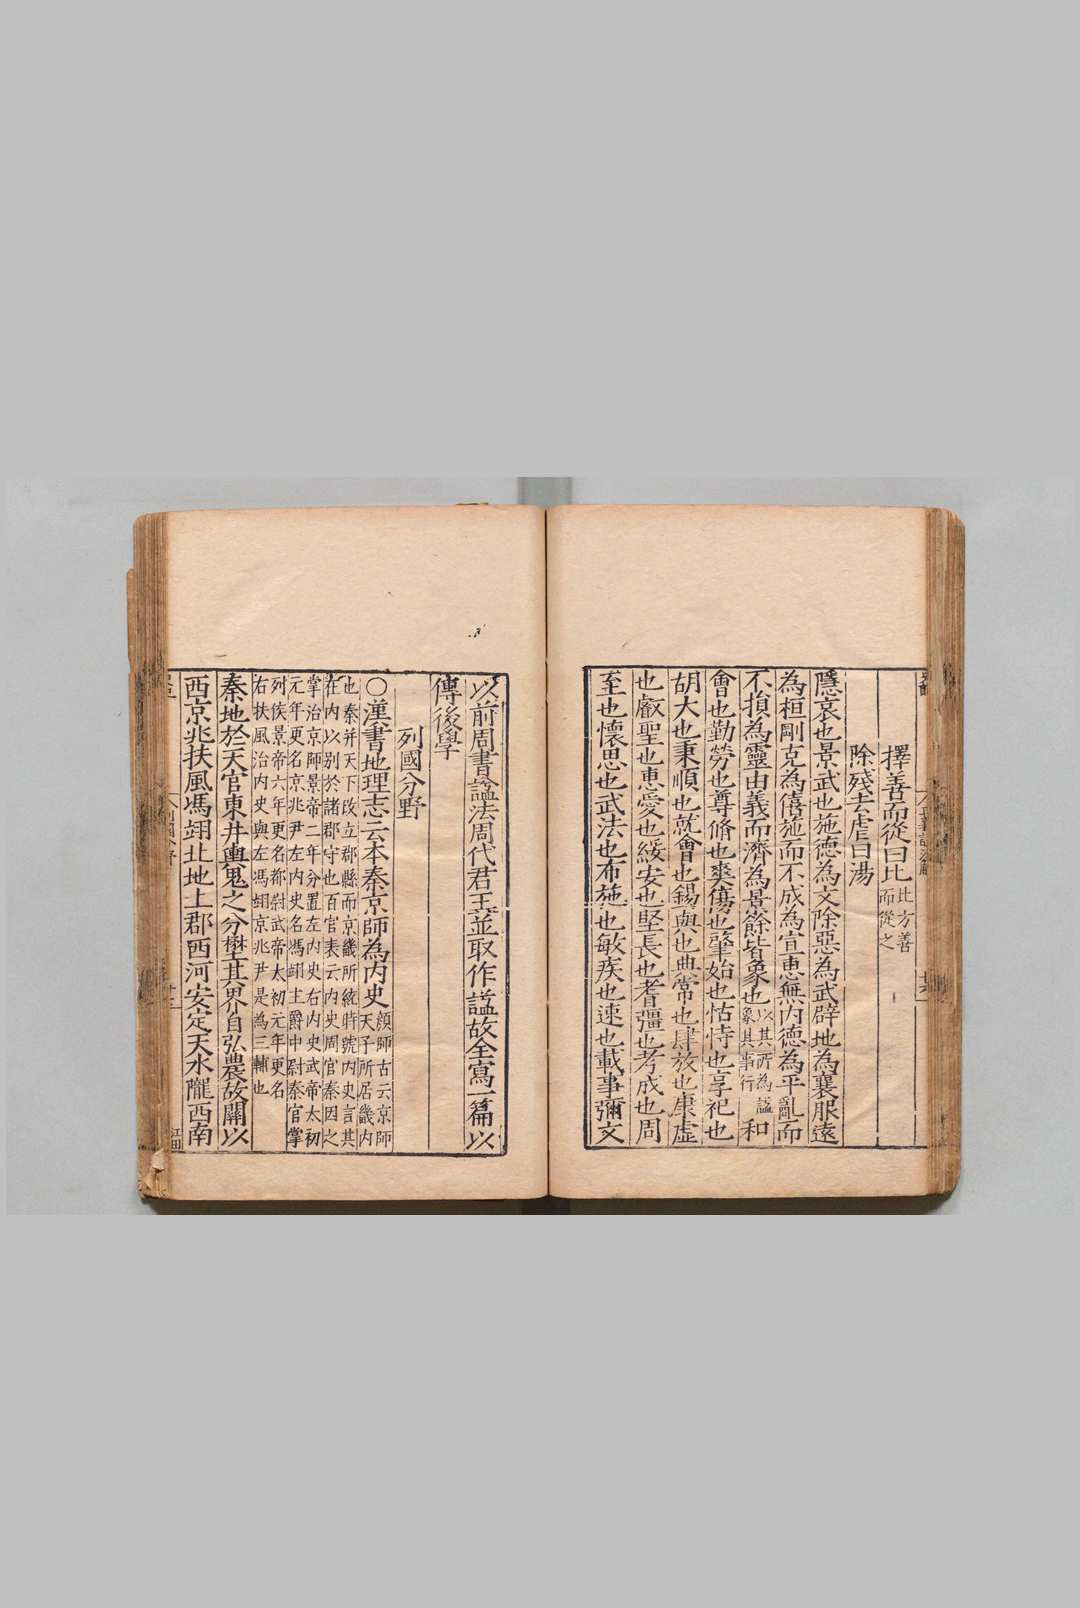 擇善而從曰比 比方善而從之
除殘去虐曰湯
隱哀也景武也施德為文除惡為武辟地為襄服遠
為桓剛克為僖施而不成為宣惠無內德為平亂而
不損為靈由義而濟為景餘皆象也 以其所為謚象其事行 和
會也勤勞也尊脩也爽傷也肇始也怙恃也享祀也
胡大也秉順也就會也錫與也典常也肆放也康虛
也叡聖也惠愛也綏安也堅長也耆彊也考成也周
至也懷思也武法也布施也敏疾也速也載事彌文
以前周書謚法周代君王並取作謚故全寫一篇以
傳後學
列國分野
○漢書地理志云本秦京師為內史 顏師古云京師天子所居畿內
也秦并天下改立郡縣而京畿所統時號內史言其
在內以別於諸郡守也百官表云內史周官秦因之
掌治京師景帝二年分置左內史右內史武帝太初
元年更名京兆尹左內史名馮翊主爵中尉秦官掌
列侯景帝六年更名都尉武帝太初元年更名
右扶風治內史與左馮翊京兆尹是為三輔也
秦地於天官東井輿鬼之分壄其界自弘農故關以
西京兆扶風馮翊北地上郡西河安定天水隴西南